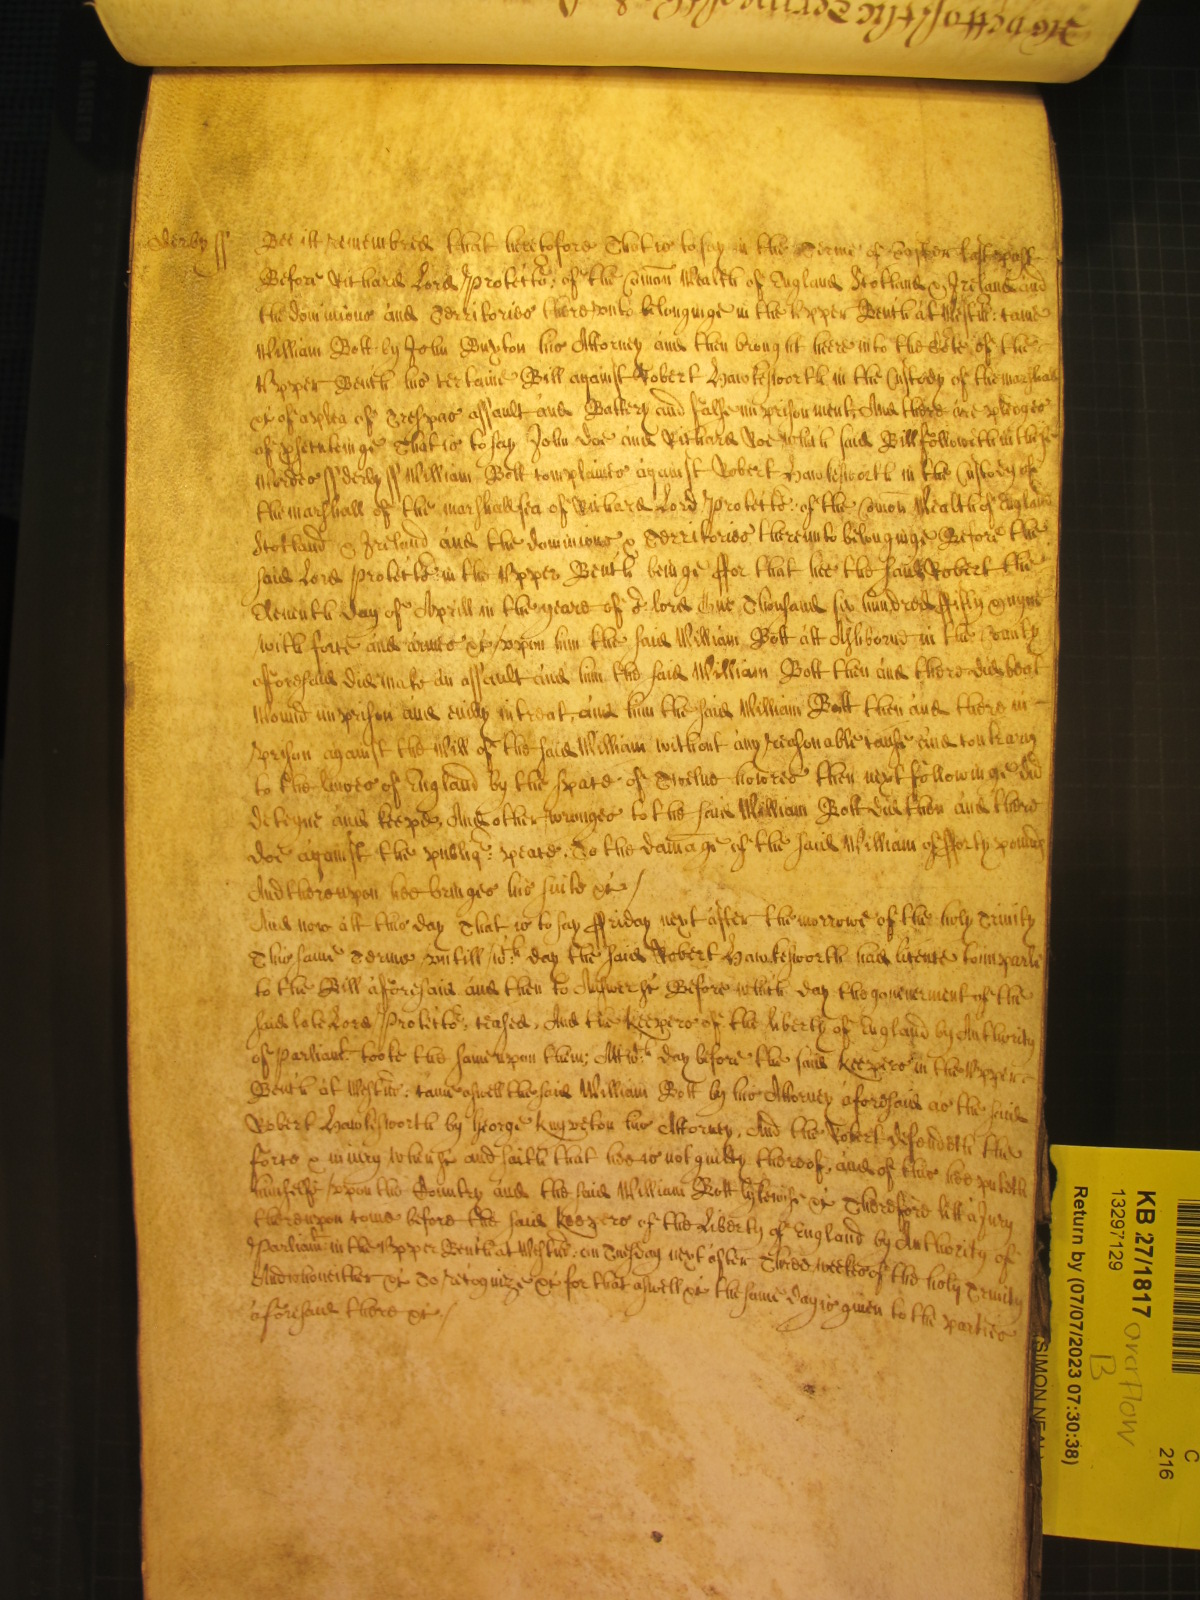 Derby ss Bee itt remembred that heretofore That is to say in the Terme of Easter last past
Before Richard Lord Protector of the Comon Wealth of England Scotland & Ireland and
the dominions and Territories thereunto belonginge in the Upper Bench at Westm: came
William Bott by John Buxton his Attorney and then brought heere into the Cote of the
Upper Bench his certaine Bill against Robert Hawkesworth in the Custody of the marshall
&c of a plea of Trespas assault and Battery and false imprisonment, And there are pledges
of psecuteinge That is to say John Doe and Richard Roe which said Bill followeth in theise
wordes ss Derby ss William Bott complaines against Robert Hawkesworth in the Custody of
the marshall of the marshallsea of Richard Lord Protector of the Comon Wealth of England
Scotland & Ireland and the dominions & Territories thereunto belonginge Before the
said Lord Protector in the Upper Bench beinge ffor that hee the said Robert the
Eleventh day of Aprill in the yeare of or lord One Thousand six hundred ffifty & nyne
with force and armes &c uppon him the said William Bott att Ashborne in the County
aforesaid did make an assault and him the said William Bott then and there did beat
Wound imprison and evilly intreat, and him the said William Bott then and there in
prison against the Will of the said William without any reasonable cause and contrary
to the lawes of England by the space of Twelve howres then next followinge did
deteyne and keepe, And other wronges to the said William Bott did then and there
doe against the publiq: peace, To the damage of the said William of fforty pounds
And thereupon hee bringes his suite &c /
And now att this day That is to say ffriday next after the morrowe of the holy Trinity
This same Terme untill wch day the said Robert Hawkesworth had licence to imparle
to the Bill aforesaid and then to Answer &c Before which day the goverment of the
said late Lord Protector ceased, And the Keepers of the liberty of England by Authority
of Parliamt tooke the same upon them; Att wch day before the said Keepers in the Upper
Bench at Westm: came aswell the said William Bott by his Attorney aforesaid as the said
Robert Hawkesworth by George Knyveton his Attorney, And the Robert defendeth the
force & iniury when &c and saith that hee is not guilty thereof, and of this hee putteth
himselfe uppon the Country and the said William Bott lykewise &c Therefore lett a Jury
thereupon come before the said Keepers of the Liberty of England by Authority of
Parliamt in the Upper Bench at Westm: on Tuesday next after Three weekes of the holy Trinity
And who neither &c To recognize &c for that aswell &c the same day is given to the parties
aforesaid there &c /
KB 27/1817
13297129
overflow
B
Return by (07/07/2023 07:30:38)
C
216